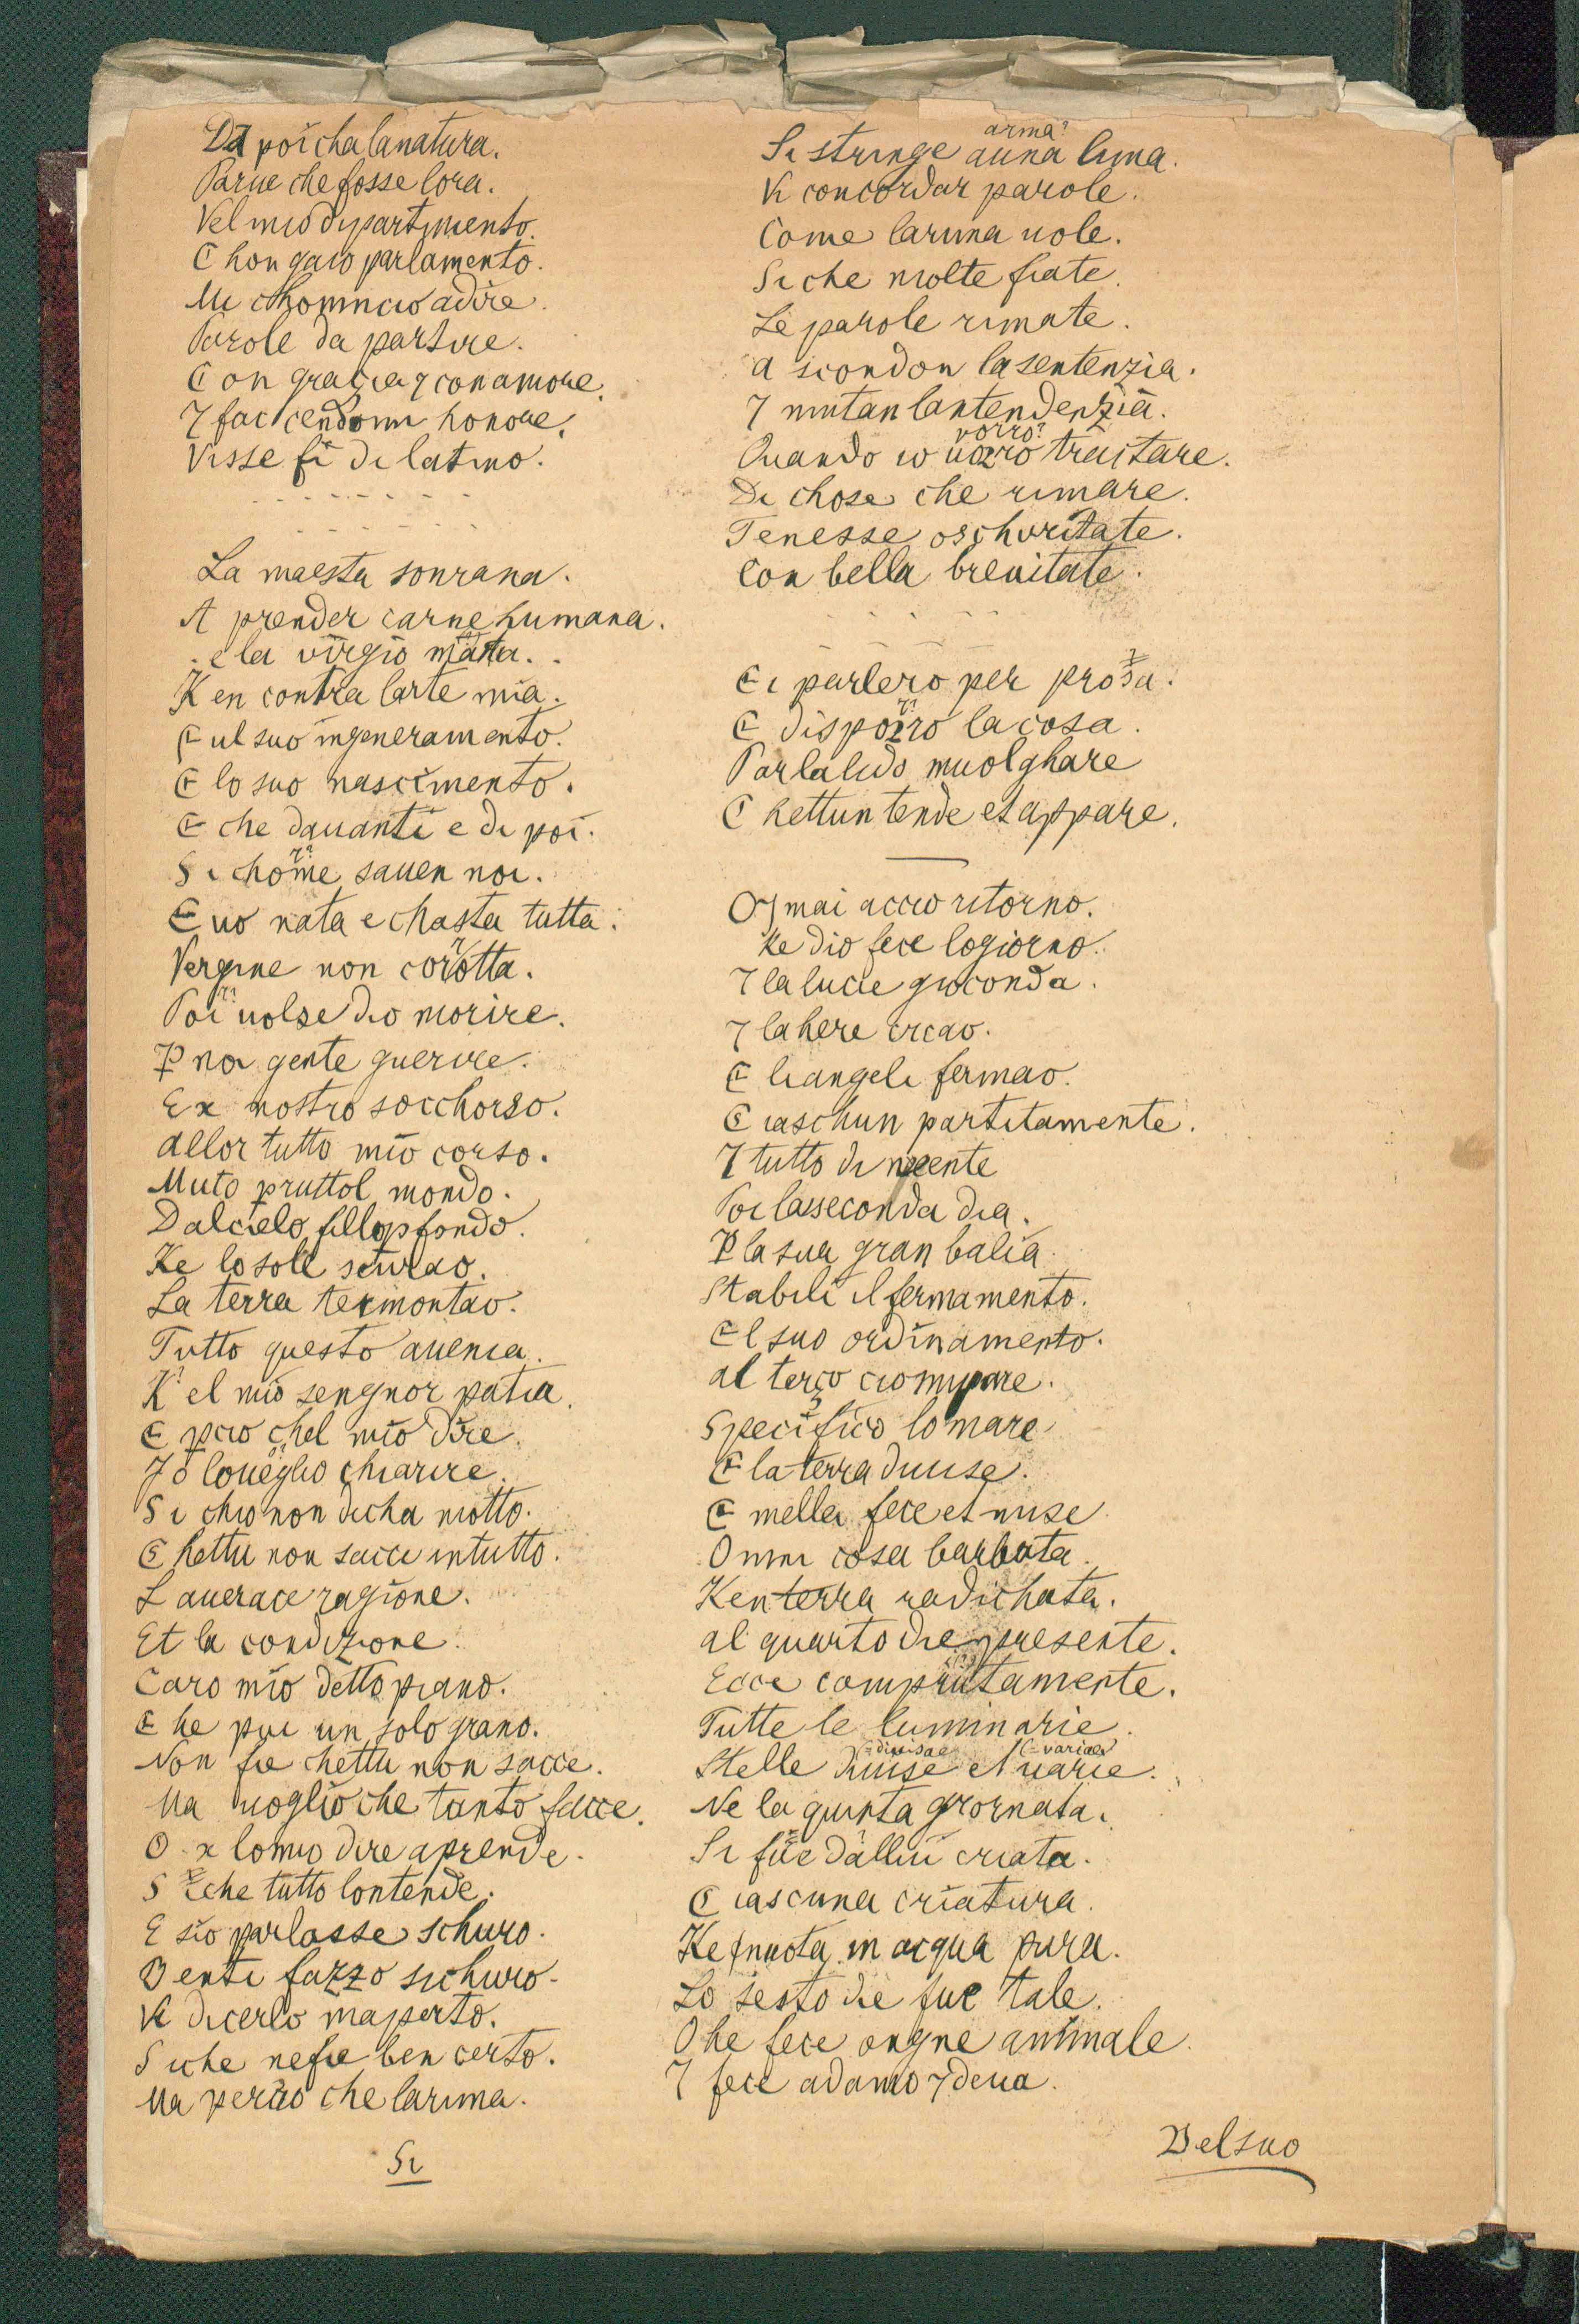 Da poi cha lanatura.
Parue che fosse lora.
Vel mio dipartimento.
C hon gaio parlamento.
Mi chominciò adire.
Parole da partire.
C on gracia 7 con amore.
7 faccendomi honore.
Visse fi di latino.
- - - - - - -
- - - - - - -
La maesta sourana.
A prender carne humana.
e la virgio
K en contra larte mia.
E ul suo ingeneramento.
E lo suo nascimento.
E che dauanti e di poi.
Si chome sauen noi.
E uo nata e chasta tutta.
Vergine non corotta.
Poi uolse dio morire.
P noi gente guerire.
Ex nostro socchorso.
allor tutto mio corso.
Muto pruttol mondo.
Dalcielo fillo pfondo.
Ke lo sole scurao.
La terra termontao.
Tutto questo auenia.
K'el mio sengnor patia.
E pcio chel mio dire.
Jo loueglio chiarire.
Si chio non dicha motto.
C hettu non sacci intutto.
L auerace ragione.
Et la condizione.
Caro mio detto piano.
C he pur un solo grano.
Non fie chettu non sacce.
Ma uoglio che tanto facce.
O x lomio dire aprende.
S iche tutto lontende.
E sio parlasse schuro.
B enti fazzo sichuro.
Vi dicerlo inaperto.
Siche nefie ben certo.
Ma percio che larima.
Si
arma?
Si stringe auna lima.
Vi concordar parole.
Come larima uole.
Si che molte fiate.
Le parole rimate.
a scondon lasentenzia.
7 mutan lantendenzia.
vorro?
Quando io uorro traitare.
Di chose che rimare.
Tenesse oschuritate.
Con bella breuitate.
- - - - -
- - - - -
Ti parlero per prosa.
E disporro la cosa.
Parlalido inuolghare
C hettuntende et appare.
Oymai accio ritorno.
Ke dio fece logiorno.
7 la lucie gioconda.
7 lahere creao.
E liangeli fermao.
C iaschun partitamente.
7 tutto di neente
Poi lasseconda dia.
P la sua gran balia.
Stabili il fermamento.
El suo ordinamento.
al terço ciomipare.
Specifico lo mare
E la terra diuise.
E mellei fece et mise
Omni cosa barbata.
Kenterra radichata.
al quarto die presente.
Fece compiutamente.
Tutte le luminarie.
=divisae (=variae)
Stelle diuise et uarie.
Ne la quinta giornata.
Si fue dallui criata.
C iascuna criatura.
Ke nuota in acqua pura.
Lo sesto die fue tale.
C he fece ongne animale.
7 fece adamo 7 deua.
Delsuo